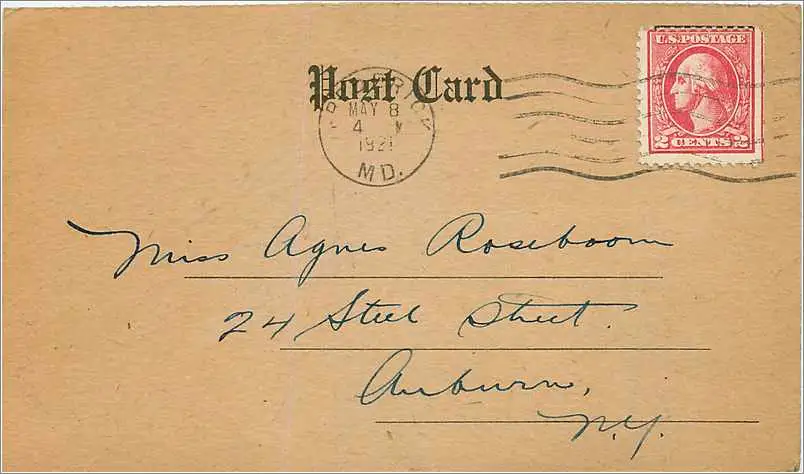 U.S. POSTAGE
2 CENTS 2
Post Card
FREDERICK
MAY 8
4
1921
MD.
Miss Agnes Roseboom
24 Steel Street.
Auburn,
N.Y.